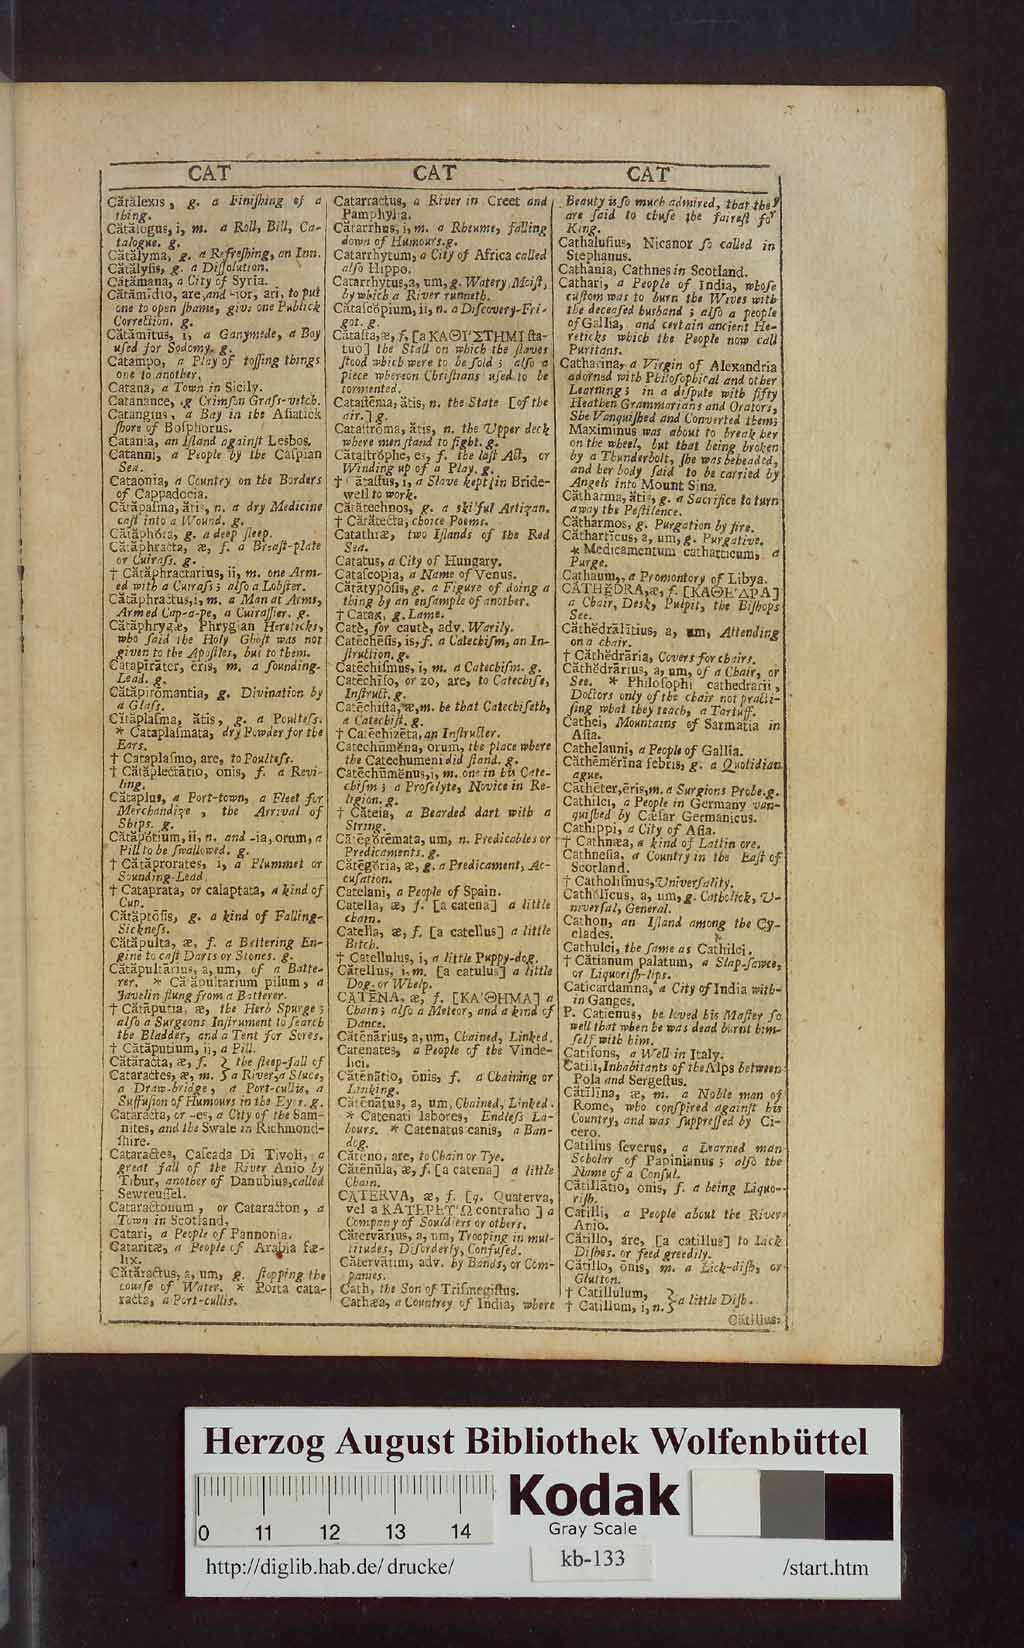 CAT
CAT
CAT
Cătălexis, g. a Finiſhing of a
thing.
Cătălogus, i, m. a Roll, Bill, Ca-
talogue. g.
Cătălyma, g. a Refreſhing, an Inn.
Cătălyſis, g. a Diſſolution.
Cătămana, a City of Syria.
Cătāmĭdio, are, and -ior, ari, to put
one to open ſhame, give one Publick
Correction. g.
Cătāmitus, i, a Ganymede, a Boy
uſed for Sodomy. g.
Catampo, a Play of toſſing things
one to another.
Catana, a Town in Sicily.
Catanance, .g Crimſon Graſs-vetch.
Catangius, a Bay in the Aſiatick
ſhore of Boſphorus.
Catania, an Iſland againſt Lesbos.
Catanni, a People by the Caſpian
Sea.
Cataonia, a Country on the Borders
of Cappadocia.
Cătăpaſma, ătis, n. a dry Medicine
caſt into a Wound. g.
Cătăphŏra, g. a deep ſleep.
Cătăphracta, æ, f. a Breaſt-plate
or Cuiraſs. g.
† Cătăphractarius, ii, m. one Arm-
ed with a Cuiraſs; alſo a Lobſter.
Cătăphractus, i, m. a Man at Arms,
Armed Cap-a-pe, a Cuiraſſier. g.
Cătăphrygæ, Phrygian Hereticks,
who ſaid the Holy Ghoſt was not
given to the Apoſtles, but to them.
Catapīrāter, ēris, m. a ſounding-
Lead. g.
Cătăpīromantia, g. Divination by
a Glaſs.
Cătăplaſma, ătis, g. a Poulteſs.
* Cataplaſmata, dry Powder for the
Ears.
† Cataplaſmo, are, to Poulteſs.
† Cătăplectātio, onis, f. a Revi-
ling.
Cătăplus, a Port-town, a Fleet for
Merchandize, the Arrival of
Ships. g.
Cătăpŏtium, ii, n. and -ia, orum, a
Pill to be ſwallowed. g.
† Cătăprorates, i, a Plummet or
Sounding-Lead.
† Cataprata, or calaptata, a kind of
Cup.
Cătăptōſis, g. a kind of Falling-
Sickneſs.
Cătăpulta, æ, f. a Bettering En-
gine to caſt Darts or Stones. g.
Cătăpultārius, a, um, of a Batte-
rer. * Catăpultarium pilum, a
Javelin flung from a Batterer.
† Cătăputia, æ, the Herb Spurge;
alſo a Surgeons Inſtrument to ſearch
the Bladder, and a Tent for Sores.
† Cătăputium, ii, a Pill.
Cătăracta, æ, f. } the ſteep-fall of
Cataractes, æ, m. } a River, a Sluce,
a Draw-bridge, a Port-cullis, a
Suffuſion of Humours in the Eyes. g.
Cataracta, or -es, a City of the Sam-
nites, and the Swale in Richmond-
ſhire.
Cataractes, Caſcada Di Tivoli, a
great fall of the River Anio by
Tibur, another of Danubius, called
Sewreuſſel.
Cataractonum, or Cataracton, a
Town in Scotland.
Catari, a People of Pannonia.
Cataritæ, a People of Arabia fæ-
lix.
Cătăractus, a, um, g. ſtopping the
courſe of Water. * Porta cata-
racta, a Port-cullis.
Catarractus, a River in Creet and
Pamphylia.
Cătarrhus, i, m. a Rheume, falling
down of Humours. g.
Catarrhytum, a City of Africa called
alſo Hippo.
Catarrhytus, a, um, g. Watery Moiſt,
by which a River runneth.
Cătaſcŏpium, ii, n. a Diſcovery-Fri-
got. g.
Cătaſta, æ, f. [a ΚΑΘΙ'ΣΤΗΜΙ ſta-
tuo] the Stall on which the ſlaves
ſtood which were to be ſold; alſo a
piece whereon Chriſtians uſed to be
tormented.
Catastēma, ătis, n. the State [of the
air.] g.
Cataſtrōma, ătis, n. the Upper deck
where men ſtand to fight. g.
Cătaſtrŏphe, es, f. the laſt Act, or
Winding up of a Play. g.
† Cataſtus, i, a Slave kept in Bride-
well to work.
Cătătechnos, g. a skilful Artizan.
† Cătătecta, choice Poems.
Catathræ, two Iſlands of the Red
Sea.
Catatus, a City of Hungary.
Cataſcopia, a Name of Venus.
Cătătypōſis, g. a Figure of doing a
thing by an enſample of another.
† Catax, g. Lame.
Catè, for cautè, adv. Warily.
Catēcheſis, is, f. a Catechiſm, an In-
ſtruction. g.
Catēchiſmus, i, m. a Catechiſm. g.
Catēchiſo, or zo, are, to Catechiſe,
Inſtruct. g.
Catēchiſta, æ, m. he that Catechiſeth,
a Catechiſt. g.
† Catēchizēta, an Inſtructer.
Catechūmĕna, orum, the place where
the Catechumeni did ſtand. g.
Catēchūmĕnus, i, m. one in his Cate-
chiſm; a Proſelyte, Novice in Re-
ligion. g.
† Căteia, a Bearded dart with a
String.
Cătēgŏrēmata, um, n. Predicables or
Predicaments. g.
Cătēgŏria, æ, g. a Predicament, Ac-
cuſation.
Catelani, a People of Spain.
Catella, æ, f. [a catena] a little
chain.
Catella, æ, f. [a catellus] a little
Bitch.
† Catellulus, i, a little Puppy-dog.
Cătellus, i, m. [a catulus] a little
Dog or Whelp.
CĂTĒNA, æ, f. [ΚΑ'ΘΗΜΑ] a
Chain; alſo a Meteor, and a kind of
Dance.
Cătēnārius, a, um, Chained, Linked.
Catenates, a People of the Vinde-
lici.
Cătēnātio, ōnis, f. a Chaining or
Linking.
Cătēnātus, a, um, Chained, Linked.
* Catenati labores, Endleſs La-
bours. * Catenatus canis, a Ban-
dog.
Cătēno, are, to Chain or Tye.
Cătēnŭla, æ, f. [a catena] a little
Chain.
CĂTERVA, æ, f. [q. Quaterva,
vel a ΚΑΤΕΡΕΤ'Ω contraho] a
Company of Souldiers or others.
Cătervārius, a, um, Trooping in mul-
titudes, Diſorderly, Confuſed.
Cătervātim, adv. by Bands, or Com-
panies.
Cath, the Son of Triſmegiſtus.
Cathæa, a Countrey of India, where
Beauty is ſo much admired, that they
are ſaid to chuſe the faireſt for
King.
Cathaluſius, Nicanor ſo called in
Stephanus.
Cathania, Cathnes in Scotland.
Cathari, a People of India, whoſe
cuſtom was to burn the Wives with
the deceaſed husband; alſo a people
of Gallia, and certain ancient He-
reticks which the People now call
Puritans.
Catharina, a Virgin of Alexandria
adorned with Philoſophical and other
Learning; in a diſpute with fifty
Heathen Grammarians and Orators,
She Vanquiſhed and Converted them;
Maximinus was about to break her
on the wheel, but that being broken
by a Thunderbolt, ſhe was beheaded,
and her body ſaid to be carried by
Angels into Mount Sina.
Cătharma, ătis, g. a Sacrifice to turn
away the Peſtilence.
Cătharmos, g. Purgation by fire.
Cătharticus, a, um, g. Purgative.
* Medicamentum catharticum, a
Purge.
Cathaum, a Promontory of Libya.
CĂTHEDRA, æ, f. [ΚΑΘΕ'ΔΡΑ]
a Chair, Desk, Pulpit, the Biſhops
See.
Căthĕdrālĭtius, a, um, Attending
on a chair.
† Căthĕdrāria, Covers for chairs.
Căthĕdrārius, a, um, of a Chair, or
See. * Philoſophi cathedrarii,
Doctors only of the chair not practi-
ſing what they teach, a Tartuff.
Cathei, Mountains of Sarmatia in
Aſia.
Cathelauni, a People of Gallia.
Căthēmĕrĭna febris, g. a Quotidian
ague.
Căthēter, ēris, m. a Surgions Probe. g.
Cathilci, a People in Germany van-
quiſhed by Cæſar Germanicus.
Cathippi, a City of Aſia.
† Cathnæa, a kind of Lattin ore.
Cathneſia, a Country in the Eaſt of
Scotland.
† Catholiſmus, Univerſality.
Cathŏlicus, a, um, g. Catholick, U-
niverſal, General.
Cathon, an Iſland among the Cy-
clades.
Cathulci, the ſame as Cathilci.
† Cătianum palatum, a Slap-ſawce,
or Liquoriſh-lips.
Caticardamna, a City of India with-
in Ganges.
P. Catienus, he loved his Maſter ſo
well that when he was dead burnt him-
ſelf with him.
Catifons, a Well in Italy.
Catili, Inhabitants of the Alps between
Pola and Sergeſtus.
Cătilīna, æ, m. a Noble man of
Rome, who conſpired againſt his
Country, and was ſuppreſſed by Ci-
cero.
Catilius ſeverus, a Learned man
Scholar of Papinianus; alſo the
Name of a Conſul.
Cătillātio, onis, f. a being Liquo-
riſh.
Catilli, a People about the River
Anio.
Cătillo, are, [a catillus] to Lick
Diſhes. or feed greedily.
Cătillo, ōnis, m. a Lick-diſh, or
Glutton.
† Catillulum, } a little Diſh.
† Catillum, i, n. }
Cătillus:
Herzog August Bibliothek Wolfenbüttel
0 11 12 13 14
Kodak
Gray Scale
kb-133
http://diglib.hab.de/ drucke/
/start.htm